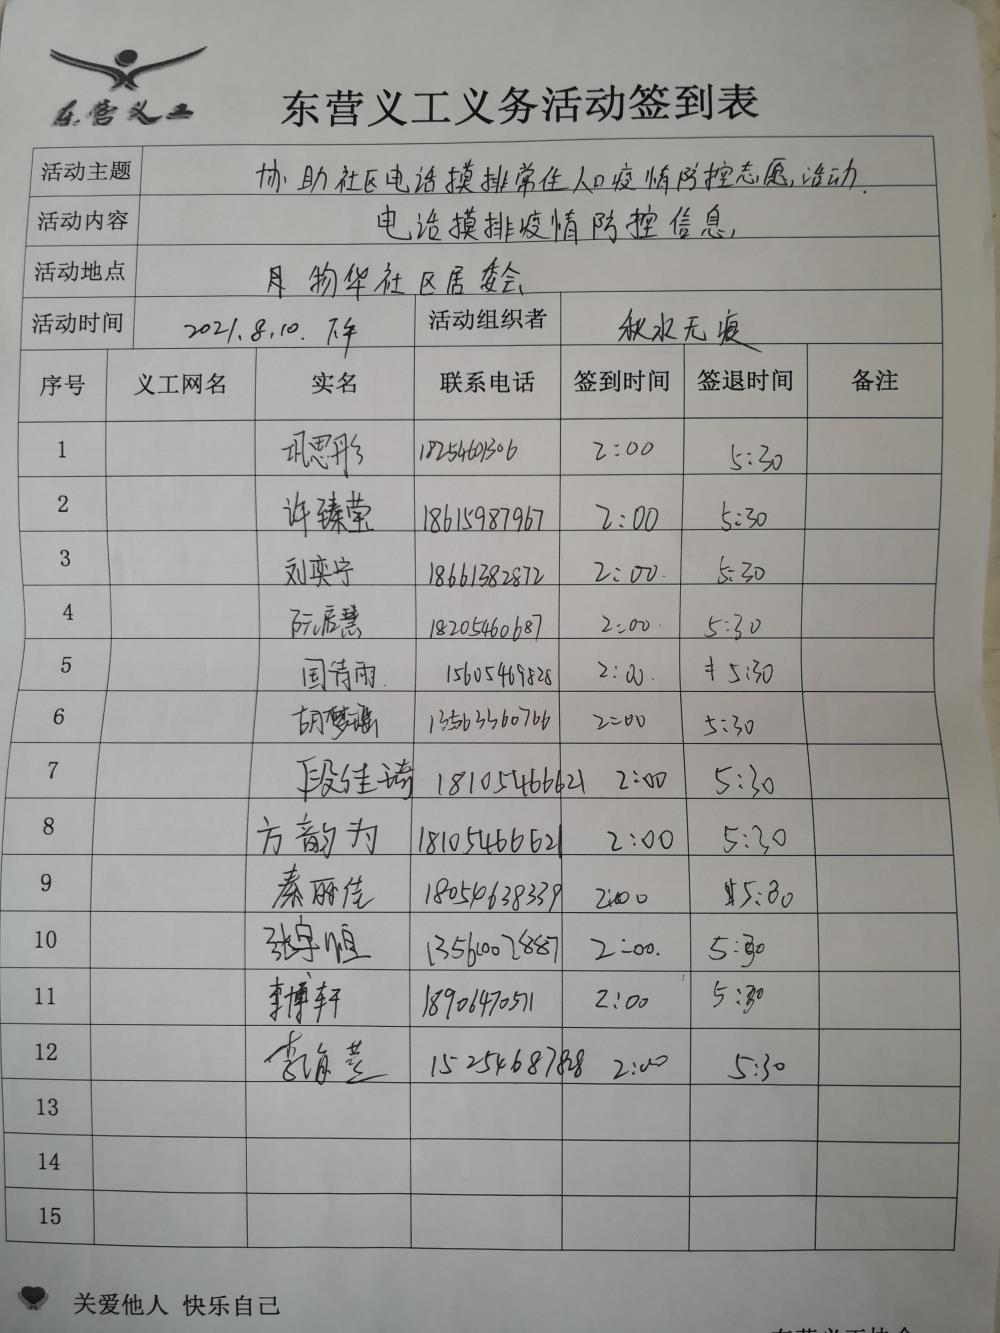 东营义工
东营义工义务活动签到表
活动主题 协助社区电话摸排常住人口疫情防控志愿活动.
活动内容 电话摸排疫情防控信息
活动地点 物华社区居委会
活动时间 2021.8.10.下午 活动组织者 秋水无痕
序号 义工网名 实名 联系电话 签到时间 签退时间 备注
1 巩思彤 18254601306 2:00 5:30
2 许臻莹 18615987967 2:00 5:30
3 刘奕宁 18661382872 2:00. 5:30
4 阮辰慧 18205460687 2:00. 5:30
5 国诗雨. 15605469828 2:00. 5:30
6 胡梦瑶 13563360766 2:00 5:30
7 段佳琦 18105466621 2:00 5:30
8 方韵为 18105466621 2:00 5:30
9 秦丽佳 18054638339 2:00 5:30
10 张宇恒 135610078887 2:00. 5:30
11 李博轩 18906470511 2:00 5:30
12 李 15254687828 2:00 5:30
13
14
15
关爱他人 快乐自己
东营义工协会